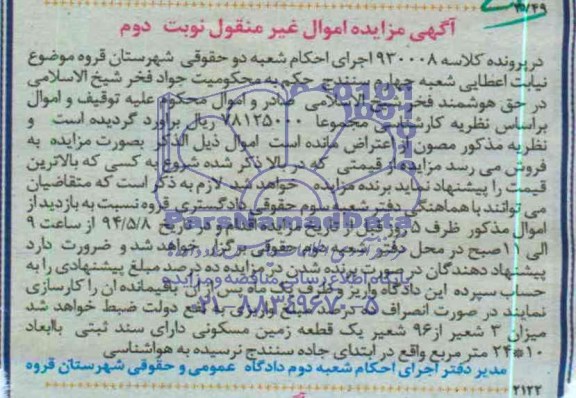 ۳۵/۴۹
آگهی مزایده اموال غیر منقول نوبت دوم
درپرونده کلاسه ۹۳۰۰۰۸ اجرای احکام شعبه دو حقوقی شهرستان قروه موضوع
نیابت اعطایی شعبه چهارم سنندج حکم به محکومیت جواد فخر شیخ الاسلامی
در حق هوشمند فخر شیخ الاسلامی صادر و اموال محکوم علیه توقیف و اموال
براساس نظریه کارشناسی مجموعا ۷۸۱۲۵۰۰۰ ریال برآورد گردیده است و
نظریه مذکور مصون از اعتراض مانده است اموال ذیل الذکر بصورت مزایده به
فروش می رسد مزایده از قیمتی که در بالا ذکر شده شروع به کسی که بالاترین
قیمت را پیشنهاد نماید برنده مزایده خواهد شد لازم به ذکر است که متقاضیان
می توانند با هماهنگی دفتر شعبه سوم حقوقی دادگستری قروه نسبت به بازدید از
اموال مذکور ظرف ۵ روز قبل از تاریخ مزایده اقدام و در تاریخ ۹۴/۵/۸ از ساعت ۹
الی ۱۱ صبح در محل دفتر شعبه دوم حقوقی برگزار خواهد شد و ضرورت دارد
پیشنهاد دهندگان در صورت برنده شدن در مزایده ده درصد مبلغ پیشنهادی را به
حساب سپرده این دادگاه واریز و ظرف یک ماه پس از آن باقیمانده ان را کارسازی
نمایند در صورت انصراف ده درصد مبلغ واریزی به نفع دولت ضبط خواهد شد
میزان ۳ شعیر از ۹۶ شعیر یک قطعه زمین مسکونی دارای سند ثبتی باابعاد
۱۰*۲۴ متر مربع واقع در ابتدای جاده سنندج نرسیده به هواشناسی
مدیر دفتر اجرای احکام شعبه دوم دادگاه عمومی و حقوقی شهرستان قروه
۲۱۲۲
ParsNamadData
پایگاه اطلاع رسانی مناقصه و مزایده
۰۲۱-۸۸۳۴۹۶۷۰-۵